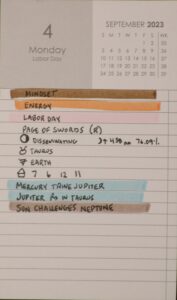 4
Monday
Labor Day
SEPTEMBER 2023
S M T W T F S WK
1 2 35
3 4 5 6 7 8 9 36
10 11 12 13 14 15 16 37
17 18 19 20 21 22 23 38
24 25 26 27 28 29 30 39
MINDSET
ENERGY
LABOR DAY
PAGE OF SWORDS (R)
DISSEMINATING
♉ TAURUS
EARTH
7 6 12 11
MERCURY TRINE JUPITER
JUPITER Rx IN TAURUS
SUN CHALLENGES NEPTUNE